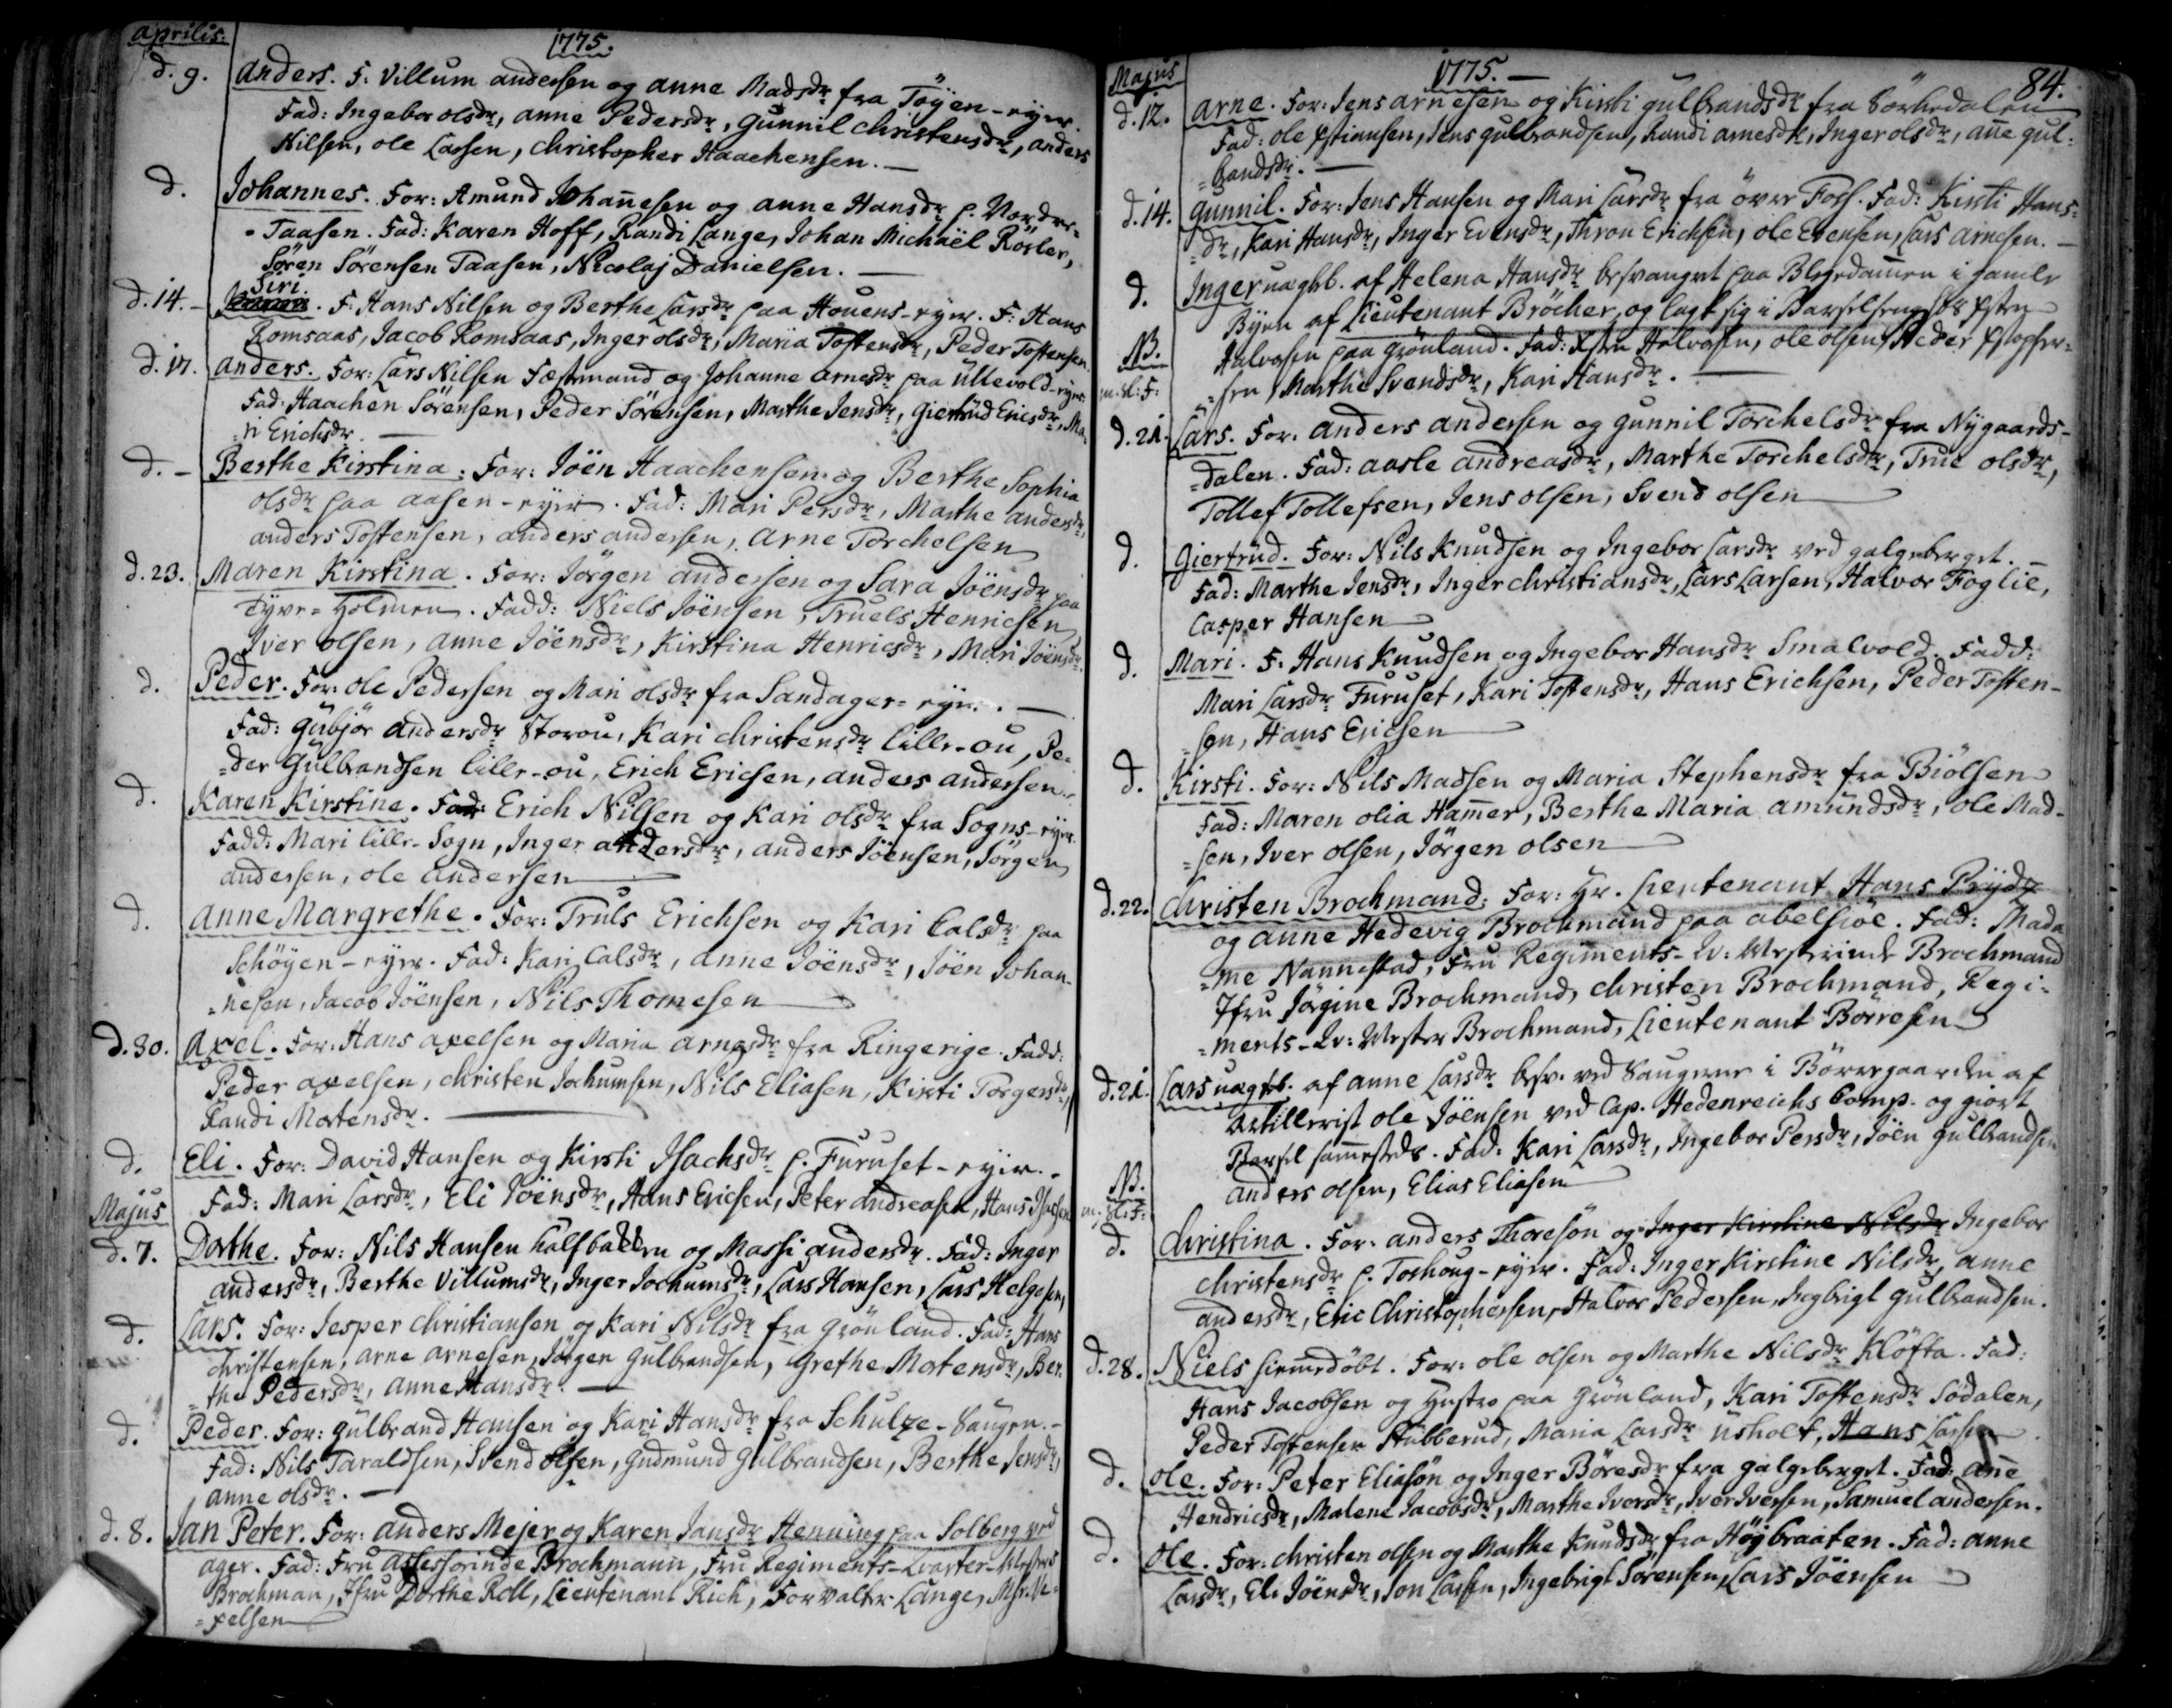 aprilis:
1775.
d. 9. Anders. F: Villum andersen og anne Madsdr fra Töyen-eyer.
Fad: Ingebor olsdr, anne Pedersdr, Gunnil Christensdr, anders
Nilsen, ole Larsen, Christopher Haachensen. —
d. Johannes. For: Amund Johanesen og anne Hansdr p. Nordre-
-Taasen. Fad: Karen Hoff, Randi Lange, Johan Michaël Rösler,
Sören Sörensen Taasen, Nicolaj Danielsen. —
Siri.
d. 14. - F: Hans Nilsen og Berthe Larsdr paa Houens-eyer. F: Hans
Romsaas, Jacob Romsaas, Inger olsdr, Maria Tostensdr, Peder Tostensen.
d. 17. anders. For: Lars Nilsen Fæstemand og Johanne arnesdr paa Ullevold-eyer
Fad: Haachen Sörensen, Peder Sörensen, Marthe Jensdr, Giertrud Ericsdr, Ma-
=ri Erichsdr. —
d. - Berthe Kirstina. For: Jöen Haachensen og Berthe Sophia
olsdr paa aasen-eyer. Fad: Mari Persdr, Marthe andersdr,
anders Tostensen, anders andersen, Arne Torchelsen
d. 23. Maren Kirstina. For: Jörgen andersen og Sara Jöensdr paa
Tyve=Holmen. Fadd: Niels Jöensen, Truels Henricsen,
Iver olsen, anne Jöensdr, Kirstina Henricsdr, Mari Jöensdr.
d. Peder. For: ole Pedersen og Mari olsdr fra Sandager=eyer. —
Fad: Gubjör andersdr Storou, Kari Christensdr lille-ou, Pe-
=der Gulbrandsen lille-ou, Erich Ericsen, anders andersen.
d. Karen Kirstine. Erich Nilsen og Kari olsdr fra Sogns-eyer
Fadd: Mari lille-Sogn, Inger andersdr, anders Jöensen, Jörgen
andersen, ole andersen
d. Anne Margrethe. For: Truls Erichsen og Kari Calsdr paa
Schöyen-eyer. Fad: Kari Calsdr, anne Jöensdr, Jöen Johan-
=nesen, Jacob Jöensen, Nils Thomesen
d. 30. Axel. For: Hans axelsen og Maria arnesdr fra Ringerige. Fadd:
Peder axelsen, christen Jochumsen, Nils Eliasen, Kirsti Torgersdr,
Randi Mortensdr. —
d. Eli. For: David Hansen og Kirsti Isachsdr p. Furuset-eyer. -
Fad: Mari Larsdr, Eli Jöensdr, Hans Ericsen, Peter andreasen, Hans
Majus
d. 7. Dorthe. For: Nils Hansen halfbakken og Massi andersdr. Fad: Inger
andersdr, Berthe Villumsdr, Inger Jochumsdr, Lars Hansen, Lars Helgesen,
d. Lars. For: Jesper Christiansen og Kari Nilsdr fra Grönland. Fad: Hans
christensen, arne arnesen, Jörgen Gulbrandsen, Grethe Mortensdr, Ber-
=the Pedersdr, anne Hansdr. —
d. Peder. For: gulbrand Hansen og Kari Hansdr fra Schulze-Saugen. -
Fad: Nils Taraldsen, Svend olsen, Gudmund Gulbrandsen, Berthe Jensdr,
anne olsdr. —
d. 8. Jan Peter. For: anders Mejer og Karen Jansdr Henning paa Solberg ved
ager. Fad: Fru assessorinde Brochmann, Fru Regiments-Qvarter-Mester
Brochman, Jfru Dorthe Roll, Lieutenant Rich, Forvalter Lange,
=pelsen
Majus
1775. —
84.
d. 12. Arne. For: Jens arnesen og Kirsti gulbrandsdr fra Sörkedalen
Fad: ole Xstiansen, Jens gulbrandsen, Randi arnesdr, Inger olsdr, ane gul-
=brandsdr. —
d. 14. Gunnil. For: Jens Hansen og Mari Larsdr fra över Foss. Fad: Kirsti Hans-
=dr, Kari Hansdr, Inger Evensdr, Thron Erichsen, ole Evensen, Lars arnesen. —
d. Inger uægtb. af Helena Hansdr besvangret paa Blegedamen i gamle
Byen af Lieutenant Bröcher, og lagt sig i Barselseng hos Xsten
NB. Halvorsen paa Grönland. Fad: Xsten Halvorsen, ole olsen, Peder Xstopher-
=sen, Marthe Svendsdr, Kari Hansdr. —
d. 21. Lars. For: anders andersen og gunnil Torchelsdr fra Nygaards-
=dalen. Fad: aasle andreasdr, Marthe Torchelsdr, True olsdr,
Tollef Tollefsen, Jens olsen, Svend olsen
d. Giertrud. For: Nils Knudsen og Ingebor Larsdr ved galgeberget. —
Fad: Marthe Jensdr, Inger christiansdr, Lars Larsen, Halvor Foglie,
Casper Hansen
d. Mari. F: Hans Knudsen og Ingebor Hansdr Smalvold. Fadd:
Mari Larsdr Furuset, Kari Tostensdr, Hans Erichsen, Peder Tosten-
=sen, Hans Ericsen
d. Kirsti. For: Nils Madsen og Maria Stephensdr fra Biölsen
Fad: Maren olia Hamer, Berthe Maria amundsdr, ole Mad-
=sen, Iver olsen, Jörgen olsen
d. 22. Christen Brochmand. For: Hr. Lieutenant Hans Prydz
og Anne Hedevig Brochmand paa abelsiöe. Fad: Mada-
=me Nannestad, Fru Regiments-Qv: Mesterinde Brochmand
Jfru Jörgine Brochmand, christen Brochmand, Regi-
=ments-Qv: Mester Brochmand, Lieutenant Börresen
d. 21. Lars uægtb. af anne Larsdr besv. ved Saugerne i Börregaarden af
Artillerist ole Jöensen ved Cap. Hedenreichs Comp. og giort
Barsel samesteds. Fad: Kari Larsdr, Ingebor Persdr, Jöen Gulbrandsen
NB. anders olsen, Elias Eliasen
d. Christina. For: anders Thoresön og Inger Kirstine Nilsdr Ingebor
Christensdr p. Toshoug-eyer. Fad: Inger Kirstine Nilsdr, anne
andersdr, Eric Christophersen, Halvor Pedersen, Ingbrigt gulbrandsen.
d. 28. Niels hiemedöbt. For: ole olsen og Marthe Nilsdr Klöfta. Fad:
Hans Jacobsen og Hustro paa Grönland, Kari Tostensdr Södalen,
Peder Tostensen Stubberud, Maria Larsdr Usholt, Hans Larsen
d. Ole. For: Peter Eliasön og Inger Böresdr fra galgeberget. Fad: ane
Hendricsdr, Malene Jacobsdr, Marthe Iversdr, Iver Iversen, Samuel andersen.
d. Ole. For: christen olsen og Marthe Knudsdr fra Högbraaten. Fad: anne
Larsdr, Eli Jöensdr, Jon Larsen, Ingebrigt Sörensen, Lars Jöensen